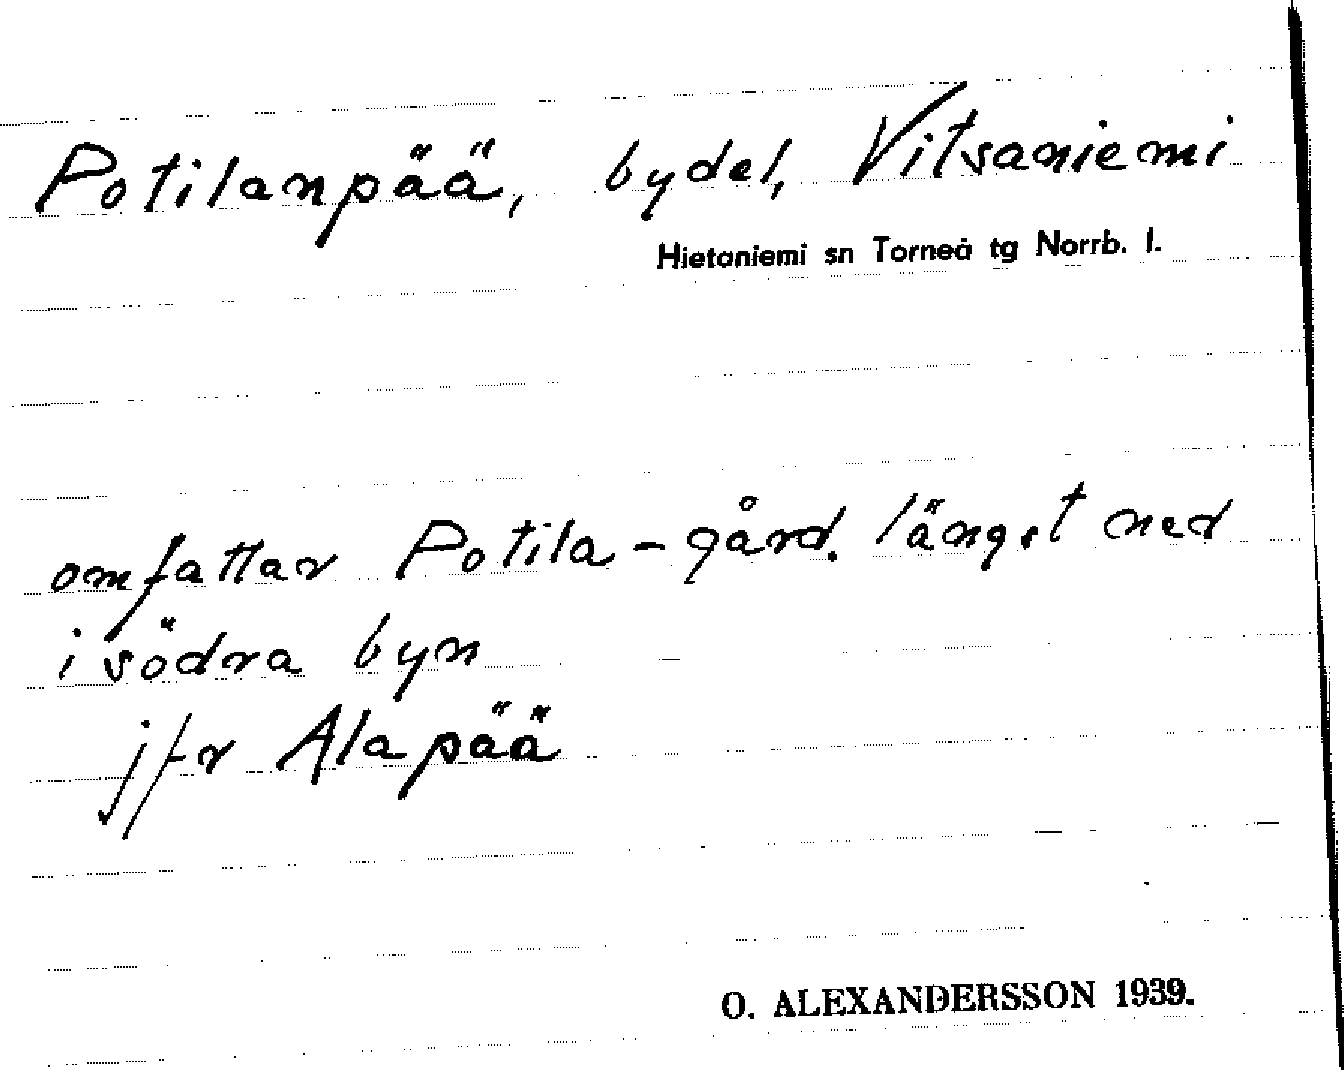 Potilanpää, bydel, Vitsaniemi
Hietaniemi sn Torneå tg Norrb. l.
omfattar Potila-gård. längst ned
i södra byn
jfr Alapää
O. ALEXANDERSSON 1939.